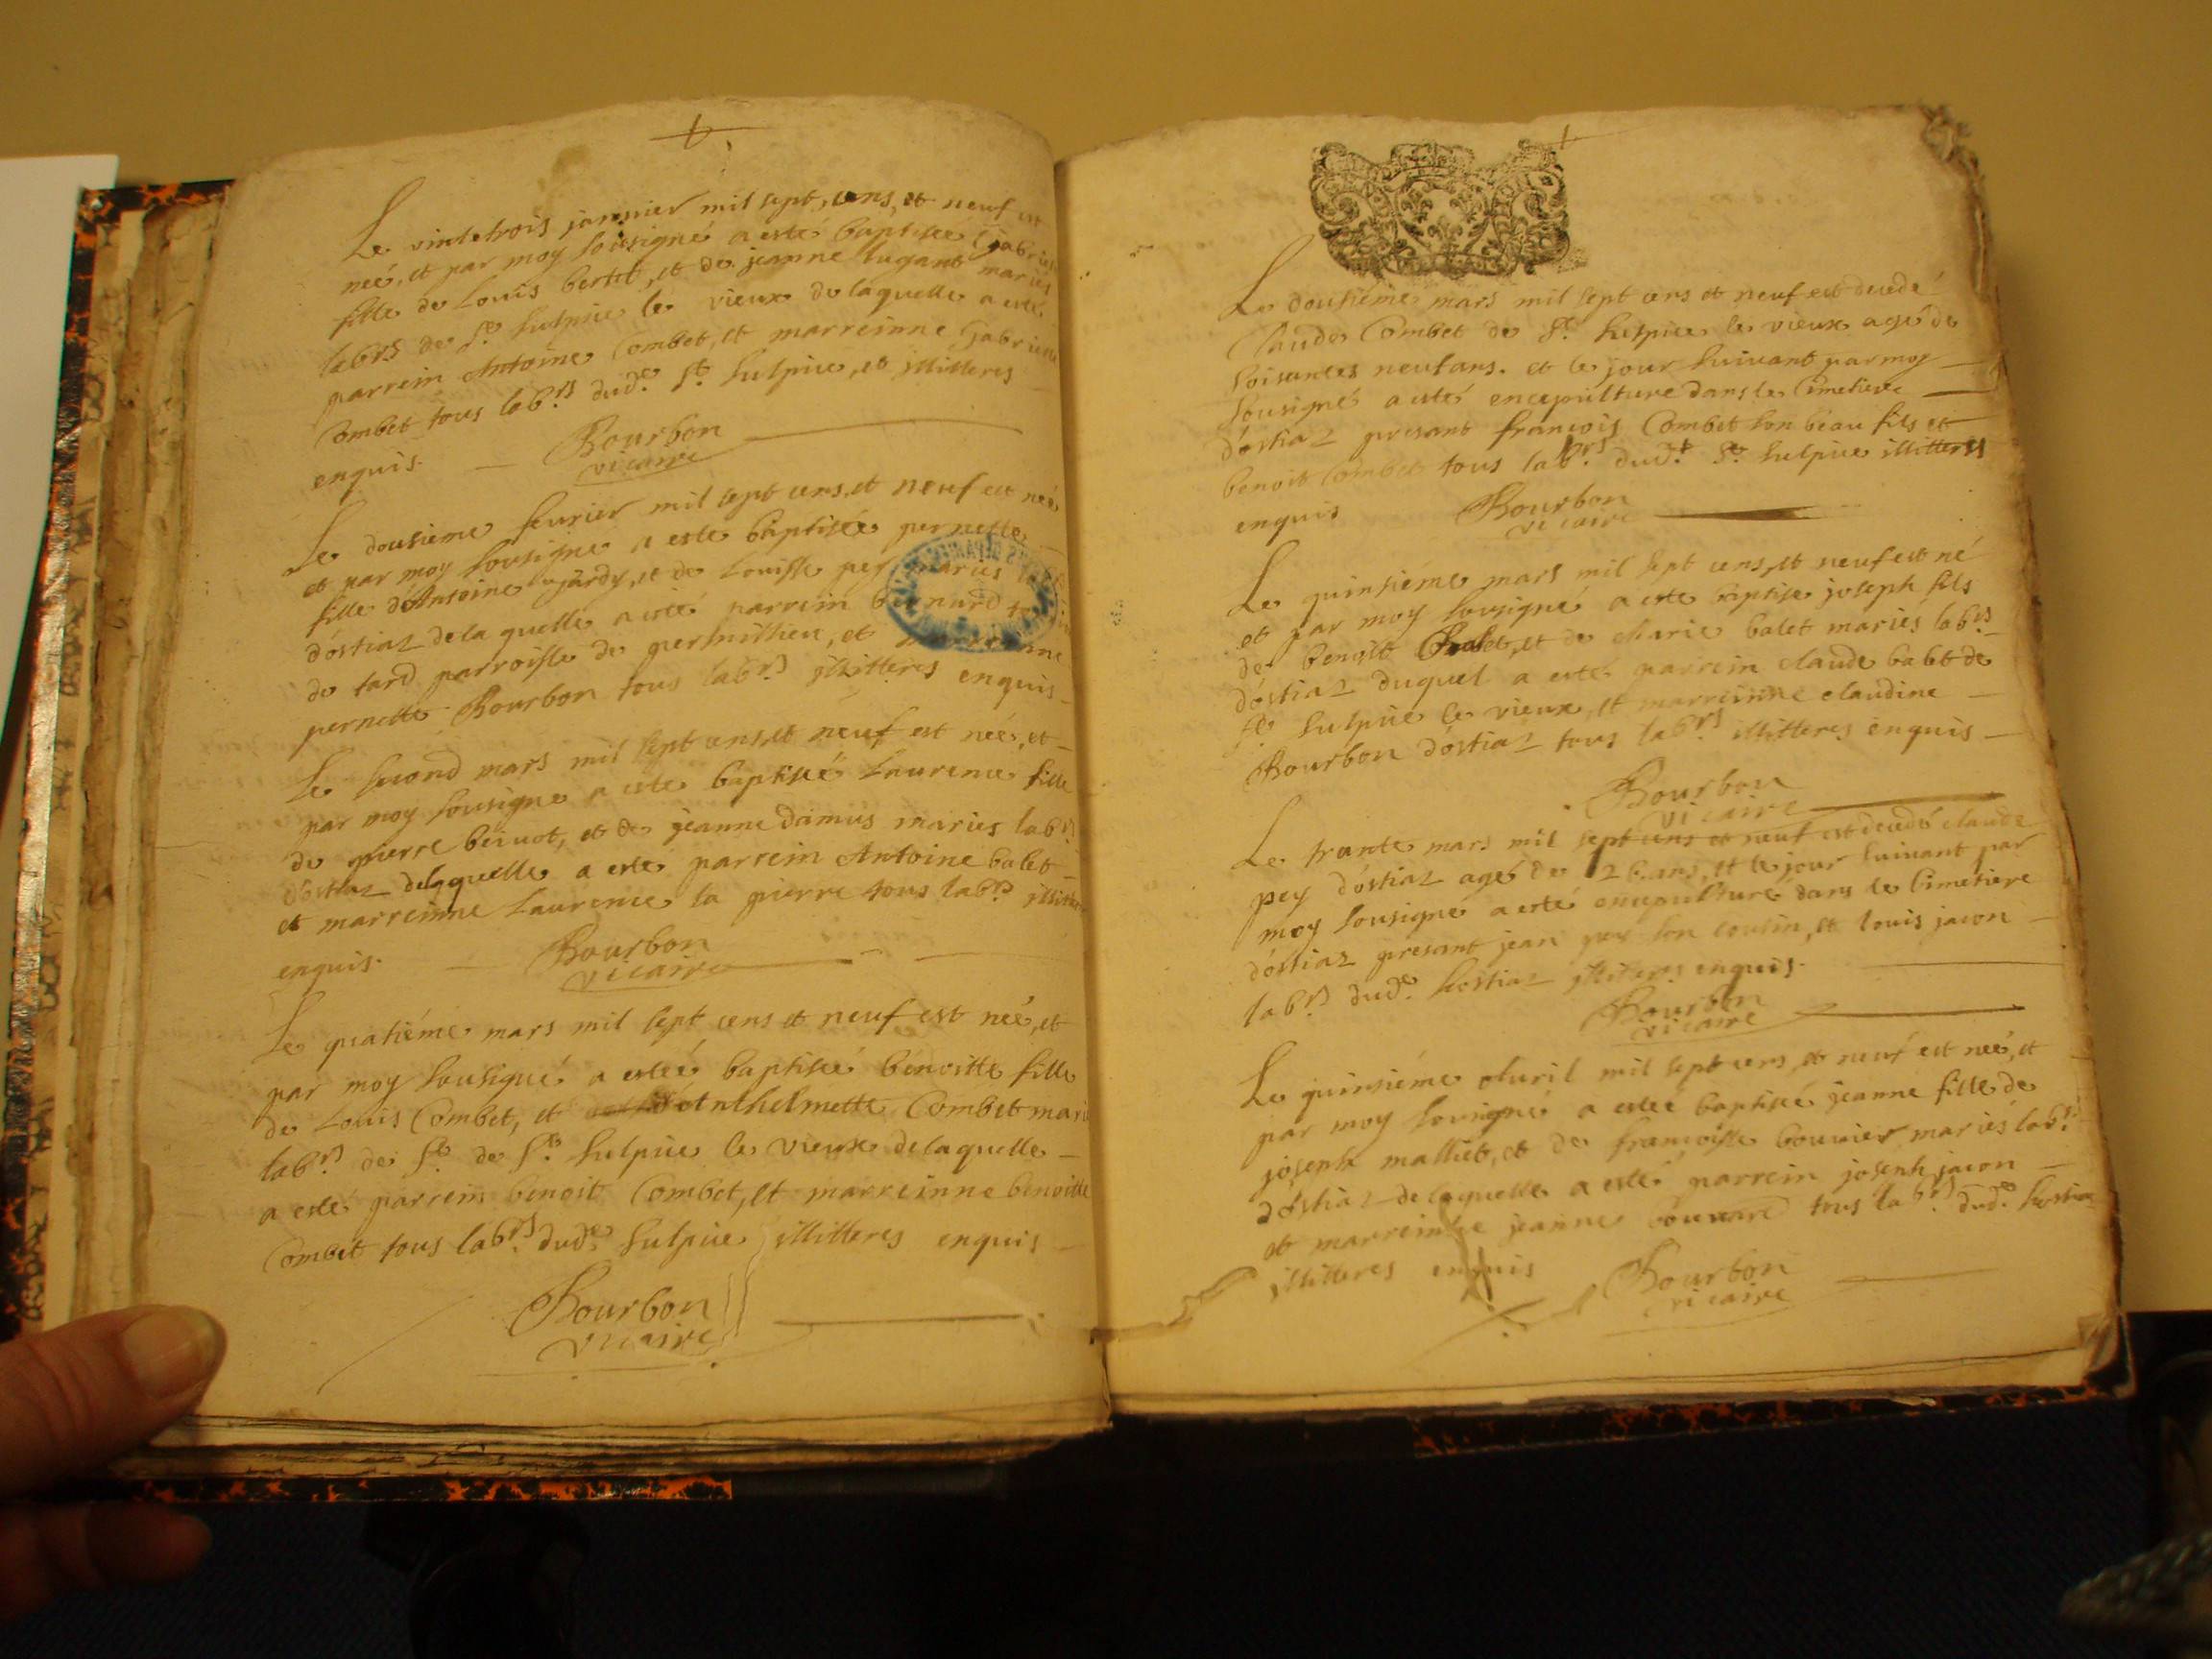 Le vintetrois janvier mil sept, cens, et neuf est
née, et par moy sousigné a esté baptisée Gabrielle
fille de Louis bertet, et de jeanne lugant mariés
labrs de St. Sulpice le vieux de laquelle a esté
parrein Antoine Combet, et marreinne Gabrielle
Combet tous labrs dude. St. Sulpice, et illitteres
enquis.
Bourbon
vicaire
Le dousieme feurier mil sept cens, et neuf est née
et par moy sousigne a este baptisée pernette
fille d'Antoine jardy, et de Louisse pey mariés
dóstiaz de la quelle a esté parrein bernard
de tard parroisse de permillieu, et marreinne
pernette Bourbon tous labrs illitteres enquis
Le second mars mil sept cens, et neuf est née, et
par moy sousigne a este baptisée Laurence fille
de pierre beivot, et de jeanne damus mariés labrs
dóstiaz delaquelle a esté parrein Antoine balet
et marreinne Laurence la pierre tous labrs illitteres
enquis.
Bourbon
vicaire
Le quatiéme mars mil sept cens et neuf est née, et
par moy sousigné a esteé baptisée bénoitte fille
de Louis Combet, et d'Anthelmette Combet mariés
labrs de St. de St. Sulpice le vieux delaquelle
a esté parrein benoit Combet, et marreinne benoitte
Combet tous labrs dude. Sulpice illitteres enquis
Bourbon
vicaire
Le dousiéme mars mil sept cens et neuf est decedé
Claude Combet de St. Sulpice le vieux agé de
soisantes neuf ans. et le jour suivant par moy
sousigné a esté encepulture dans le Cimetiere
dóstiaz presant francois Combet son beau fils et
benoit Combet tous labrs dudt. St. Sulpice illitteres
enquis
Bourbon
vicaire
Le quinsiéme mars mil sept cens, et neuf est né
et par moy sousigné a este baptise joseph fils
de benoit Balet, et de Marie balet mariés labrs
dóstiaz duquel a esté parrein claude balet de
St. Sulpice le vieux, et marreinne claudine
Bourbon dóstiaz tous labrs illitteres enquis
Bourbon
vicaire
Le trante mars mil sept cens et neuf est decedé claude
pey dóstiaz agé de ans, et le jour suivant par
moy sousigné a esté encepulturé dans le Cimetiere
dóstiaz presant jean pey son cousin, et louis jacon
labrs dude. hostiaz illitteres enquis.
Bourbon
vicaire
Le quinsiéme Avril mil sept cens, et neuf est neé, et
par moy sousigné a esteé baptisée jeanne fille de
joseph malliet, et de francoisse bouvier mariés labrs
dóstiaz de laquelle a esté parrein joseph jacon
et marreinne jeanne bouvard tous labrs dude. hostiaz
illitteres enquis
Bourbon
vicaire